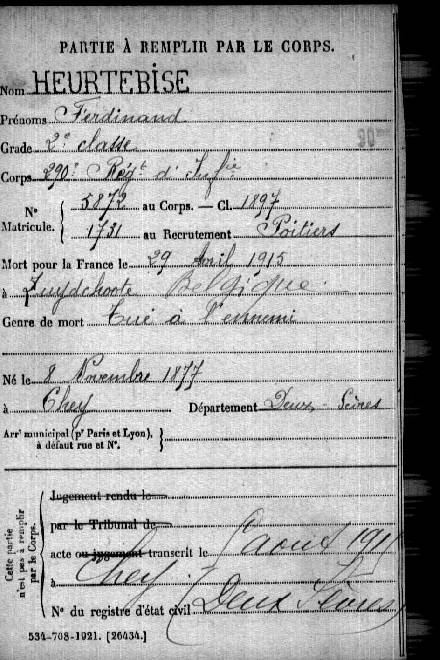 PARTIE À REMPLIR PAR LE CORPS.
Nom HEURTEBISE
Prénoms Ferdinand
Grade 2e classe
90
Corps 290e Régt d'Infie
N° Matricule. { 5872 au Corps. — Cl. 1897
1731 au Recrutement Poitiers
Mort pour la France le 29 Avril 1915
à Zuydchoote Belgique
Genre de mort Tué à l'ennemi
Né le 8 Novembre 1877
à Chey Département Deux-Sèvres
Arrt municipal (pr Paris et Lyon), à défaut rue et N°. }
Cette partie n'est pas à remplir par le Corps.
Jugement rendu le
par le Tribunal de
acte ou jugement transcrit le août
à Chey
N° du registre d'état civil (Deux Sèvres
534-708-1921. [26434.]